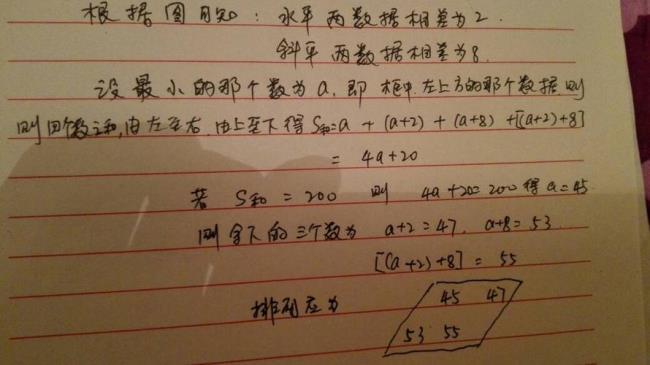 根据图可知：水平两数据相差为2.
斜平两数据相差为8.
设最小的那个数为a,即框中左上方的那个数据则
则四个数之和,由左至右 由上至下得S和=a+(a+2)+(a+8)+[(a+2)+8]
=4a+20
若 S和=200 则 4a+20=200得a=45
则余下的三个数为 a+2=47. a+8=53.
[(a+2)+8]=55
排列应为
45 47
53 55